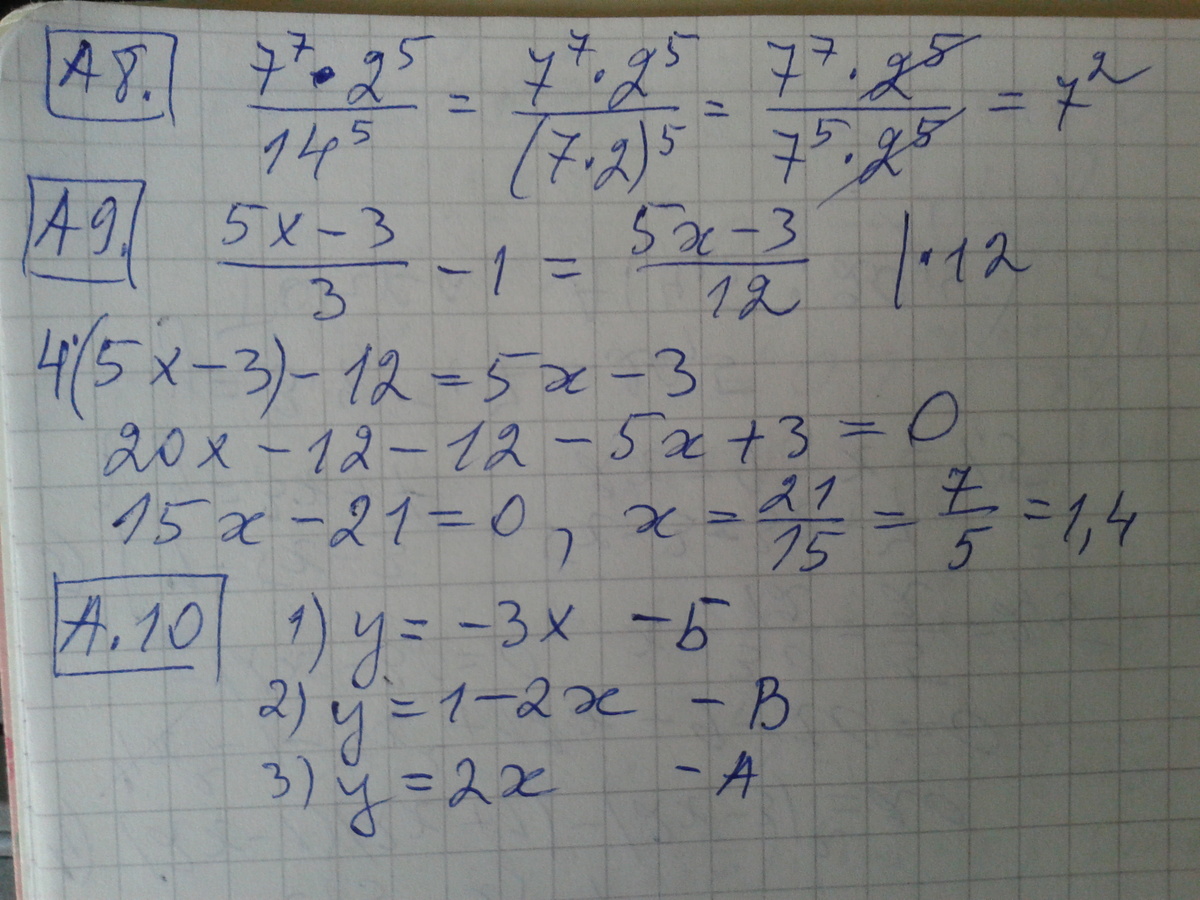 А8. 7⁷·2⁵/14⁵ = 7⁷·2⁵/(7·2)⁵ = 7⁷·2⁵/7⁵·2⁵ = 7²
А9. (5x-3)/3 - 1 = (5x-3)/12 |·12
4·(5x-3)-12=5x-3
20x-12-12-5x+3=0
15x-21=0, x=21/15=7/5=1,4
А.10 1) y=-3x -Б
2) y=1-2x -В
3) y=2x -А